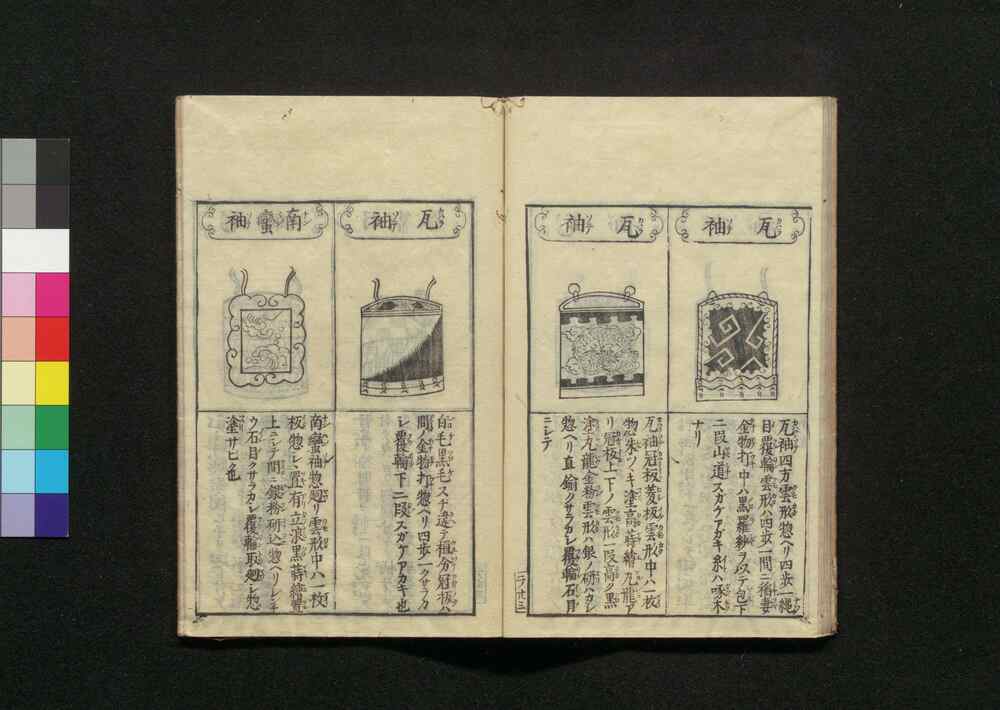 瓦袖
瓦袖四方雲形惣ヘリ四歩一縄
目覆輪雲形ハ四歩一間ニ稲妻
金物打中ハ黒羅紗ヲステ包下
二段山道スカケアカキ糸ハ啄木
ナリ
瓦袖
瓦袖冠板菱板雲形中ハ一枚
物朱ツヽキ塗高蒔繪九龍ア
リ冠板上下ノ雲形一段高ク黒
塗九龍金粉雲形ハ銀ノ研ハカシ
惣ヘリ真鍮クサラカシ覆輪石目
ニシテ
二ノ廿三
瓦袖
白毛黒毛スチ違テ植分冠板ハ
間ノ金物打惣ヘリ四歩一クサラカ
シ覆輪下二段スカケアカキ也
南蠻袖
南蠻袖惣廻リ雲形中ハ一枚
板惣シ置有立浪黒蒔繪
上ニシテ間ニ銀粉研込惣ヘリシンチ
ウ石目クサラカシ覆輪取廻シ惣
塗サヒ色